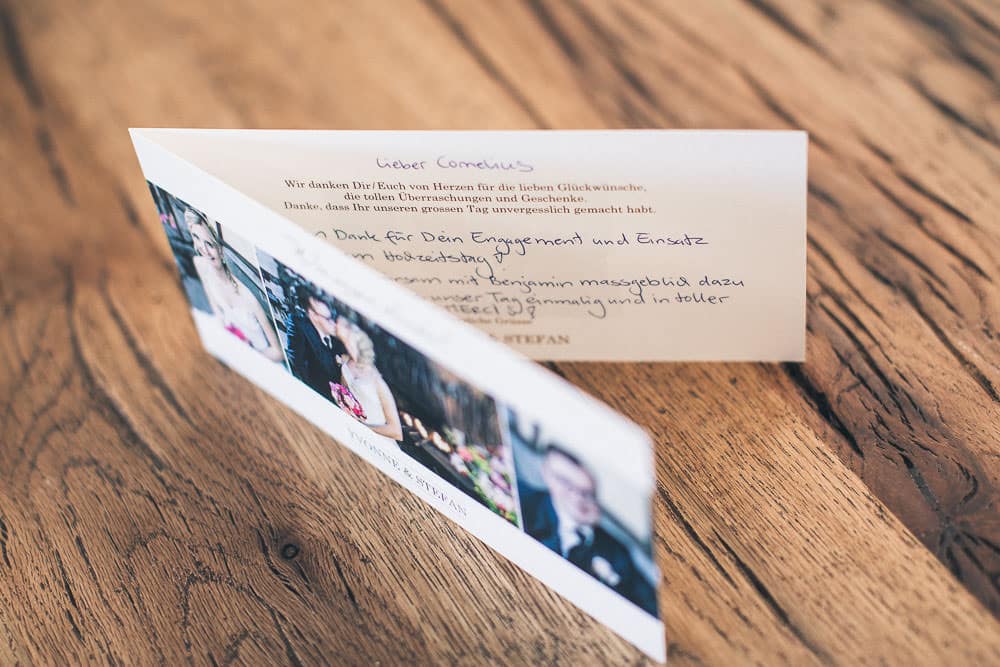 Lieber Cornelius
Wir danken Dir/Euch von Herzen für die lieben Glückwünsche,
die tollen Überraschungen und Geschenke.
Danke, dass Ihr unseren grossen Tag unvergesslich gemacht habt.
Dank für Dein Engagement und Einsatz
m Hochzeitstag
sam mit Benjamin massgeblich dazu
unser Tag einmalig und in toller
MERCI
Grüsse
STEFAN
YVONNE & STEFAN